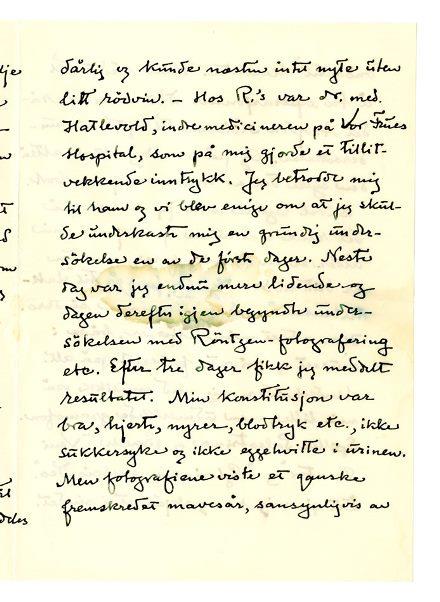 dårlig og kunde næsten intet nyte uten
litt rödvin. – Hos R.'s var dr. med.
Hatlevold, indremedicineren på Vor Frues
Hospital, som på mig gjorde et tillit-
vekkende inntrykk. Jeg betrodde mig
til ham og vi blev enige om at jeg skul-
de underkaste mig en grundig under-
sökelse en av de först dager. Neste
dag var jeg endnu mere lidende og
dagen derefter igjen begyndte under-
sökelsen med Röntgen-fotografering
etc. Efter tre dager fikk jeg meddelt
resultatet. Min konstitusjon var
bra, hjerte, nyrer, blodtryk etc., ikke
sukkersyke og ikke eggehvitte i urinen.
Men fotografiene viste et ganske
fremskredet mavesår, sansynligvis av